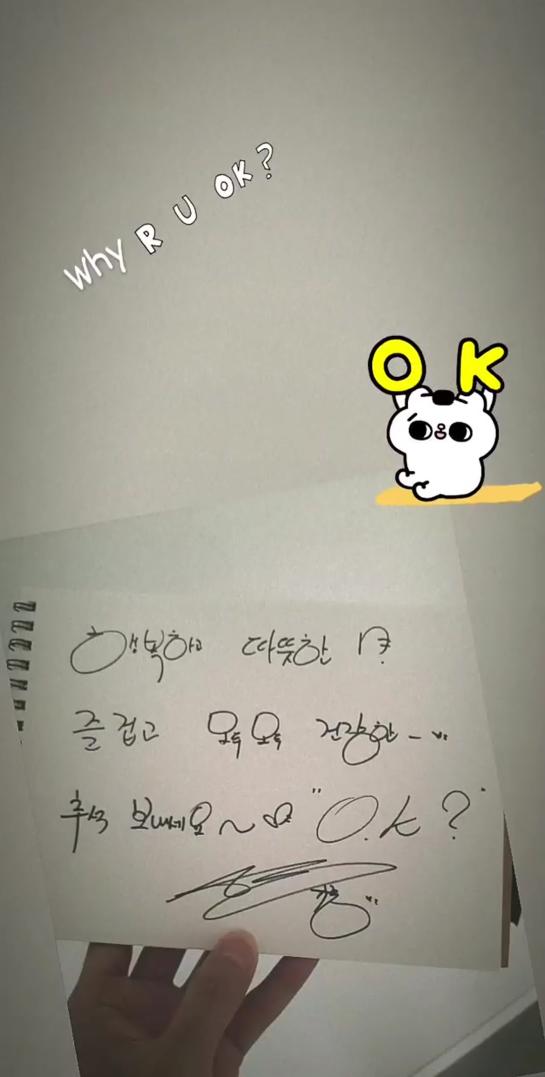 why R U OK?
OK
행복하고 따뜻한
즐겁고 모두모두 건강한~
추석 보내세요~♡ "O.K?"